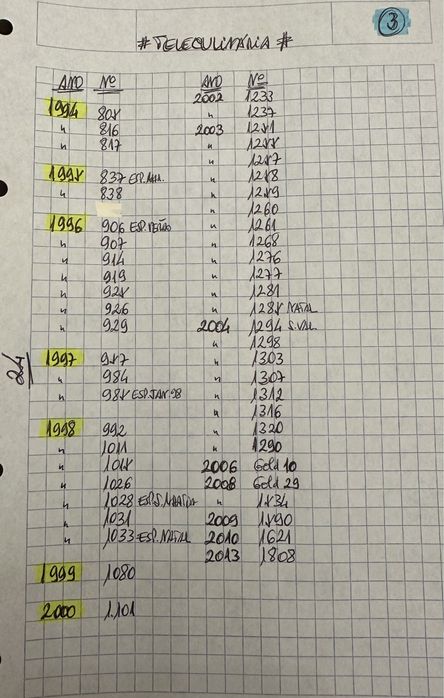 3
#TELECULINÁRIA #
ANO Nº ANO Nº
2002 1233
1994 805 " 1237
" 816 2003 1251
" 817 " 1255
" 1257
1995 837 ESP. " 1258
" 838 " 1259
" 1260
1996 906 ESP. VERÃO " 1261
" 907 " 1268
" 914 " 1276
" 919 " 1277
" 925 " 1281
" 926 " 1285 NATAL
" 929 2004 1294 S.VAL.
" 1298
24 1997 957 " 1303
" 984 " 1307
" 985 ESP.JAN 98 " 1312
" 1316
1998 992 " 1320
" 1011 " 1290
" 1015 2006 Gold 10
" 1026 2008 Gold 29
" 1028 " 1534
" 1031 2009 1590
" 1033 ESP.NATAL 2010 1621
2013 1808
1999 1080
2000 1.101